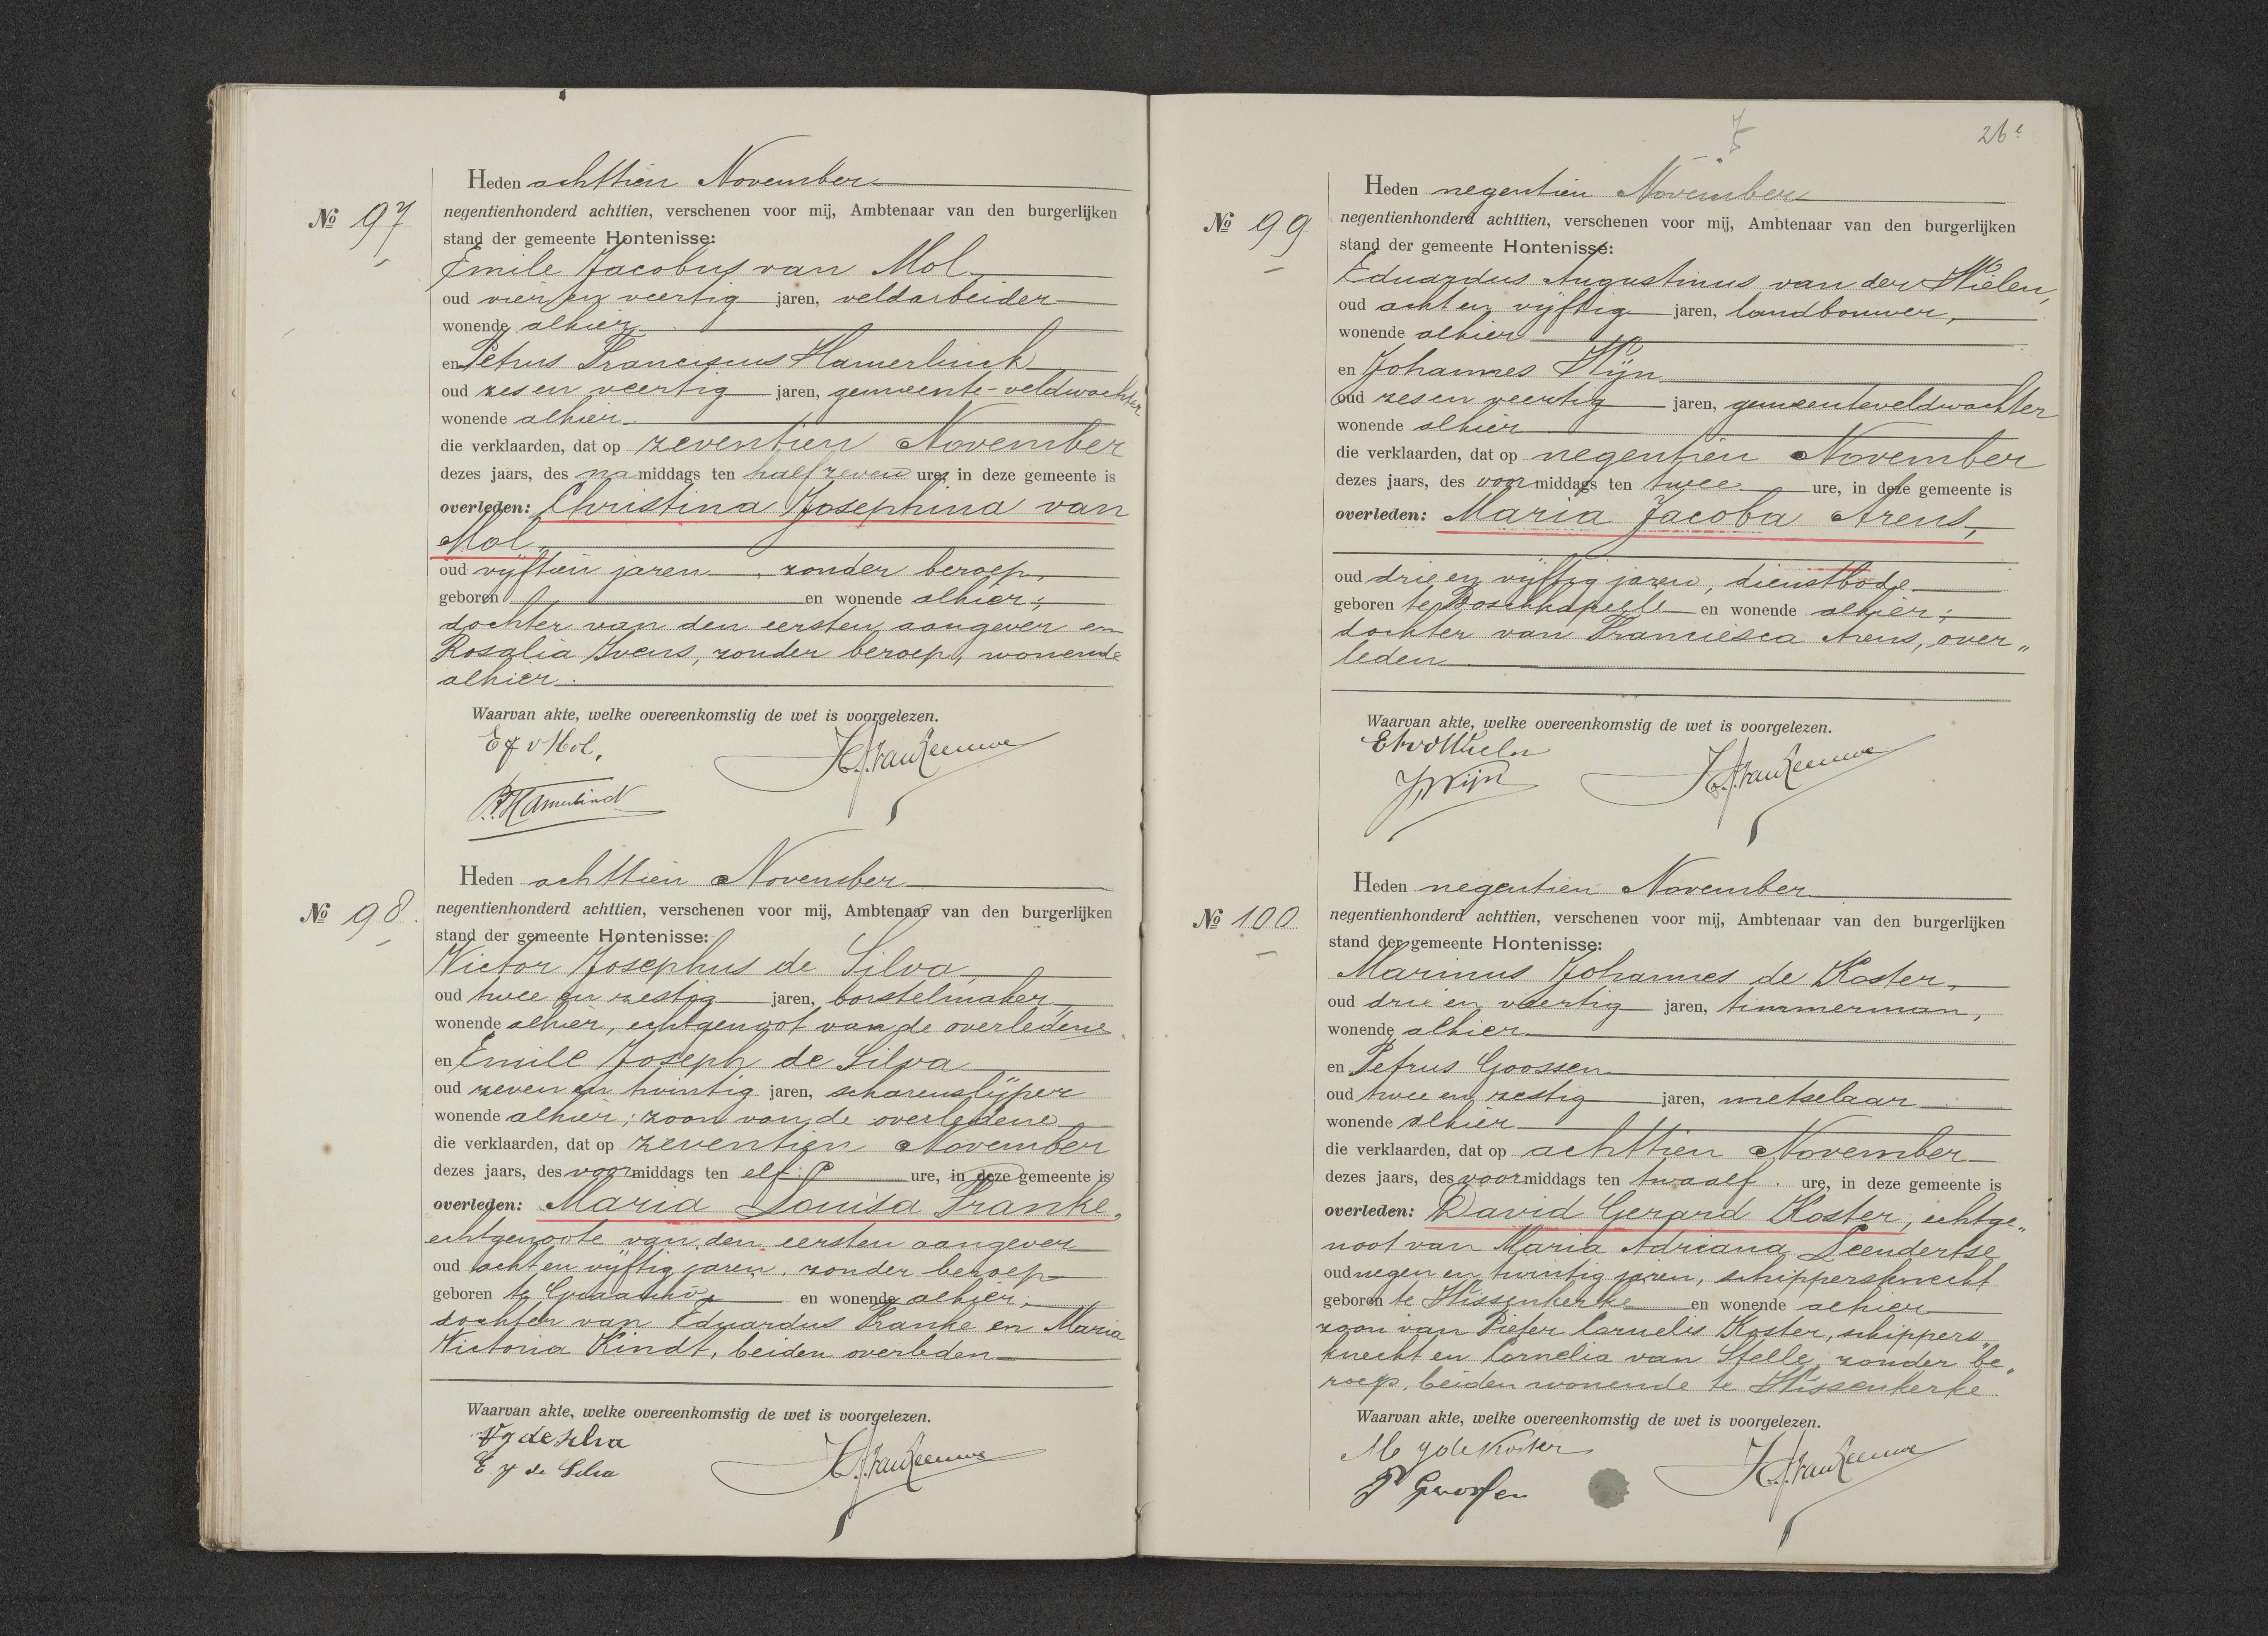 Heden achttien November
Nº 97
negentienhonderd achttien, verschenen voor mij, Ambtenaar van den burgerlijken
stand der gemeente Hontenisse:
Emile Jacobus van Mol
oud vier en veertig jaren, veldarbeider
wonende alhier
en Petrus Franciscus Hamerlinck
oud zes en veertig jaren, gemeente-veldwachter
wonende alhier
die verklaarden, dat op zeventien November
dezes jaars, des namiddags ten half zeven ure, in deze gemeente is
overleden: Christina Josephina van
Mol
oud vijftien jaren, zonder beroep,
geboren en wonende alhier;
dochter van den eersten aangever en
Rosalia Ivens, zonder beroep, wonende
alhier.
Waarvan akte, welke overeenkomstig de wet is voorgelezen.
E J v Mol.
P. F. Hamerlinck
Heden achttien November
Nº 98.
negentienhonderd achttien, verschenen voor mij, Ambtenaar van den burgerlijken
stand der gemeente Hontenisse:
Victor Josephus de Silva,
oud twee en zestig jaren, borstelmaker,
wonende alhier, echtgenoot van de overledene
en Emile Joseph de Silva
oud zeven en twintig jaren, scharenslijper
wonende alhier; zoon van de overledene
die verklaarden, dat op zeventien November
dezes jaars, des voormiddags ten elf ure, in deze gemeente is
overleden: Maria Louisa Franke,
echtgenoote van den eersten aangever
oud acht en vijftig jaren, zonder beroep
geboren te en wonende alhier;
dochter van Eduardus Franke en Maria
Victoria Kindt, beiden overleden
Waarvan akte, welke overeenkomstig de wet is voorgelezen.
V J de Silva
E J de Silva
26
Heden negentien November
Nº 99
negentienhonderd achttien, verschenen voor mij, Ambtenaar van den burgerlijken
stand der gemeente Hontenisse:
Eduardus Augustinus van der Wielen,
oud acht en vijftig jaren, landbouwer,
wonende alhier
en Johannes Wijn
oud zes en veertig jaren, gemeenteveldwachter
wonende alhier
die verklaarden, dat op negentien November
dezes jaars, des voormiddags ten twee ure, in deze gemeente is
overleden: Maria Jacoba Arens,
oud drie en vijftig jaren, dienstbode
geboren te Boschkapelle en wonende alhier;
dochter van Francisca Arens, over„
leden
Waarvan akte, welke overeenkomstig de wet is voorgelezen.
J Wijn
Heden negentien November
Nº 100
negentienhonderd achttien, verschenen voor mij, Ambtenaar van den burgerlijken
stand der gemeente Hontenisse:
Marinus Johannes de Koster,
oud drie en veertig jaren, timmerman,
wonende alhier
en Petrus Goossen
oud twee en zestig jaren, metselaar
wonende alhier
die verklaarden, dat op achttien November
dezes jaars, des voormiddags ten twaalf ure, in deze gemeente is
overleden: David Gerard Koster, echtge„
noot van Maria Adriana Leendertse
oud negen en twintig jaren, schippersknecht
geboren te Wissenkerke en wonende alhier
zoon van Pieter Cornelis Koster, schippers„
knecht en Cornelia van Stelle, zonder be„
roep, beiden wonende te Wissenkerke
Waarvan akte, welke overeenkomstig de wet is voorgelezen.
M J de Koster
P Goossen